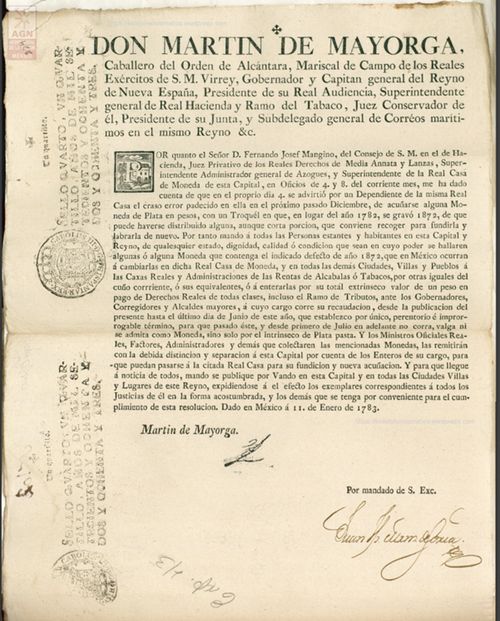 AGN
MÉXICO
DON MARTIN DE MAYORGA,
Caballero del Orden de Alcántara, Mariscal de Campo de los Reales
Exércitos de S. M. Virrey, Gobernador y Capitan general del Reyno
de Nueva España, Presidente de su Real Audiencia, Superintendente
general de Real Hacienda y Ramo del Tabaco, Juez Conservador de
él, Presidente de su Junta, y Subdelegado general de Corréos maríti-
mos en el mismo Reyno &c.
POR quanto el Señor D. Fernando Josef Mangino, del Consejo de S. M. en el de Ha-
cienda, Juez Privativo de los Reales Derechos de Media Annata y Lanzas, Super-
intendente Administrador general de Azogues, y Superintendente de la Real Casa
de Moneda de esta Capital, en Oficios de 4. y 8. del corriente mes, me ha dado
cuenta de que en el proprio dia 4. se advirtió por un Dependiente de la misma Real
Casa el craso error padecido en ella en el próximo pasado Diciembre, de acuñarse alguna Mo-
neda de Plata en pesos, con un Troquél en que, en lugar del año 1782, se gravó 1872, de que
puede haverse distribuido alguna, aunque corta porcion, que conviene recoger para fundirla y
labrarla de nuevo. Por tanto mando á todas las Personas estantes y habitantes en esta Capital y
Reyno, de qualesquier estado, dignidad, calidad ó condicion que sean en cuyo poder se hallaren
algunas ó alguna Moneda que contenga el indicado defecto de año 1872, que en México ocurran
á cambiarlas en dicha Real Casa de Moneda, y en todas las demás Ciudades, Villas y Pueblos á
las Caxas Reales y Administraciones de las Rentas de Alcabalas ó Tabacos, por otras iguales del
cuño corrriente, ó sus equivalentes, ó á enterarlas por su totál extrinseco valor de un peso en
pago de Derechos Reales de todas clases, incluso el Ramo de Tributos, ante los Gobernadores,
Corregidores y Alcaldes mayores, á cuyo cargo corre su recaudacion, desde la publicacion del
presente hasta el último dia de Junio de este año, que establezco por único, perentorio é impror-
rogable término, para que pasado éste, y desde primero de Julio en adelante no corra, valga ni
se admita como Moneda, sino solo por el intrinseco de Plata pasta. Y los Ministros Oficiales Rea-
les, Factores, Administradores y demás que colectaren las mencionadas Monedas, las remitirán
con la debida distincion y separacion á esta Capital por cuenta de los Enteros de su cargo, para
que puedan pasarse á la citada Real Casa para su fundicion y nueva acuñacion. Y para que llegue
á noticia de todos, mando se publique por Vando en esta Capital y en todas las Ciudades Villas
y Lugares de este Reyno, expidiéndose á el efecto los exemplares correspondientes á todos los
Justicias de él en la forma acostumbrada, y los demás que se tenga por conveniente para el cum-
plimiento de esta resolucion. Dado en México á 11. de Enero de 1783.
Martin de Mayorga.
Por mandado de S. Exc.
Un quartillo.
SELLO QVARTO, VN QVAR-
TILLO, AÑOS DE MIL SE-
TECIENTOS Y OCHENTA Y
DOS Y OCHENTA Y TRES.
Un quartillo.
SELLO QVARTO, VN QVAR-
TILLO, AÑOS DE MIL SE-
TECIENTOS Y OCHENTA Y
DOS Y OCHENTA Y TRES.